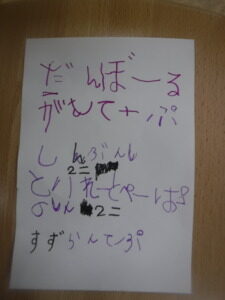 だんぼーる
がむてーぷ
しんぶんし
2こ
といれっとぺーぱー
のしん 2こ
すずらんてーぷ